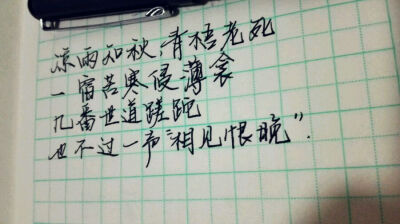 凉雨知秋 青梧老死
一宿苦寒侵薄衾
几番世道蹉跎
也不过一声“相见恨晚”.